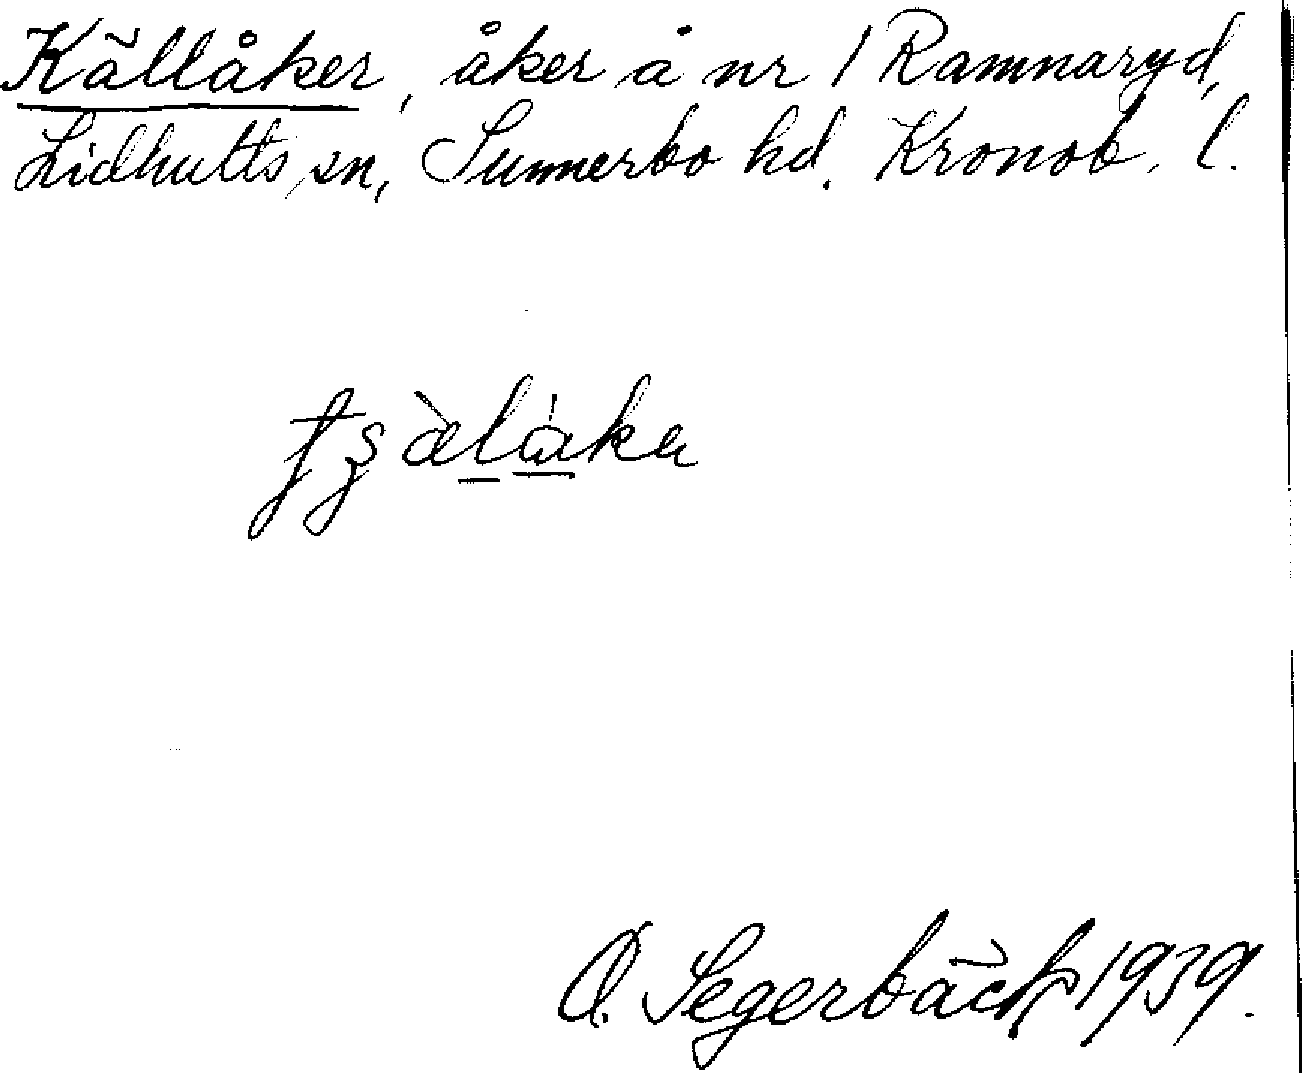 Källåker, åker å nr 1 Ramnaryd,
Lidhults sn, Sunnerbo hd. Kronob. l.
O. Segerbäck 1939.